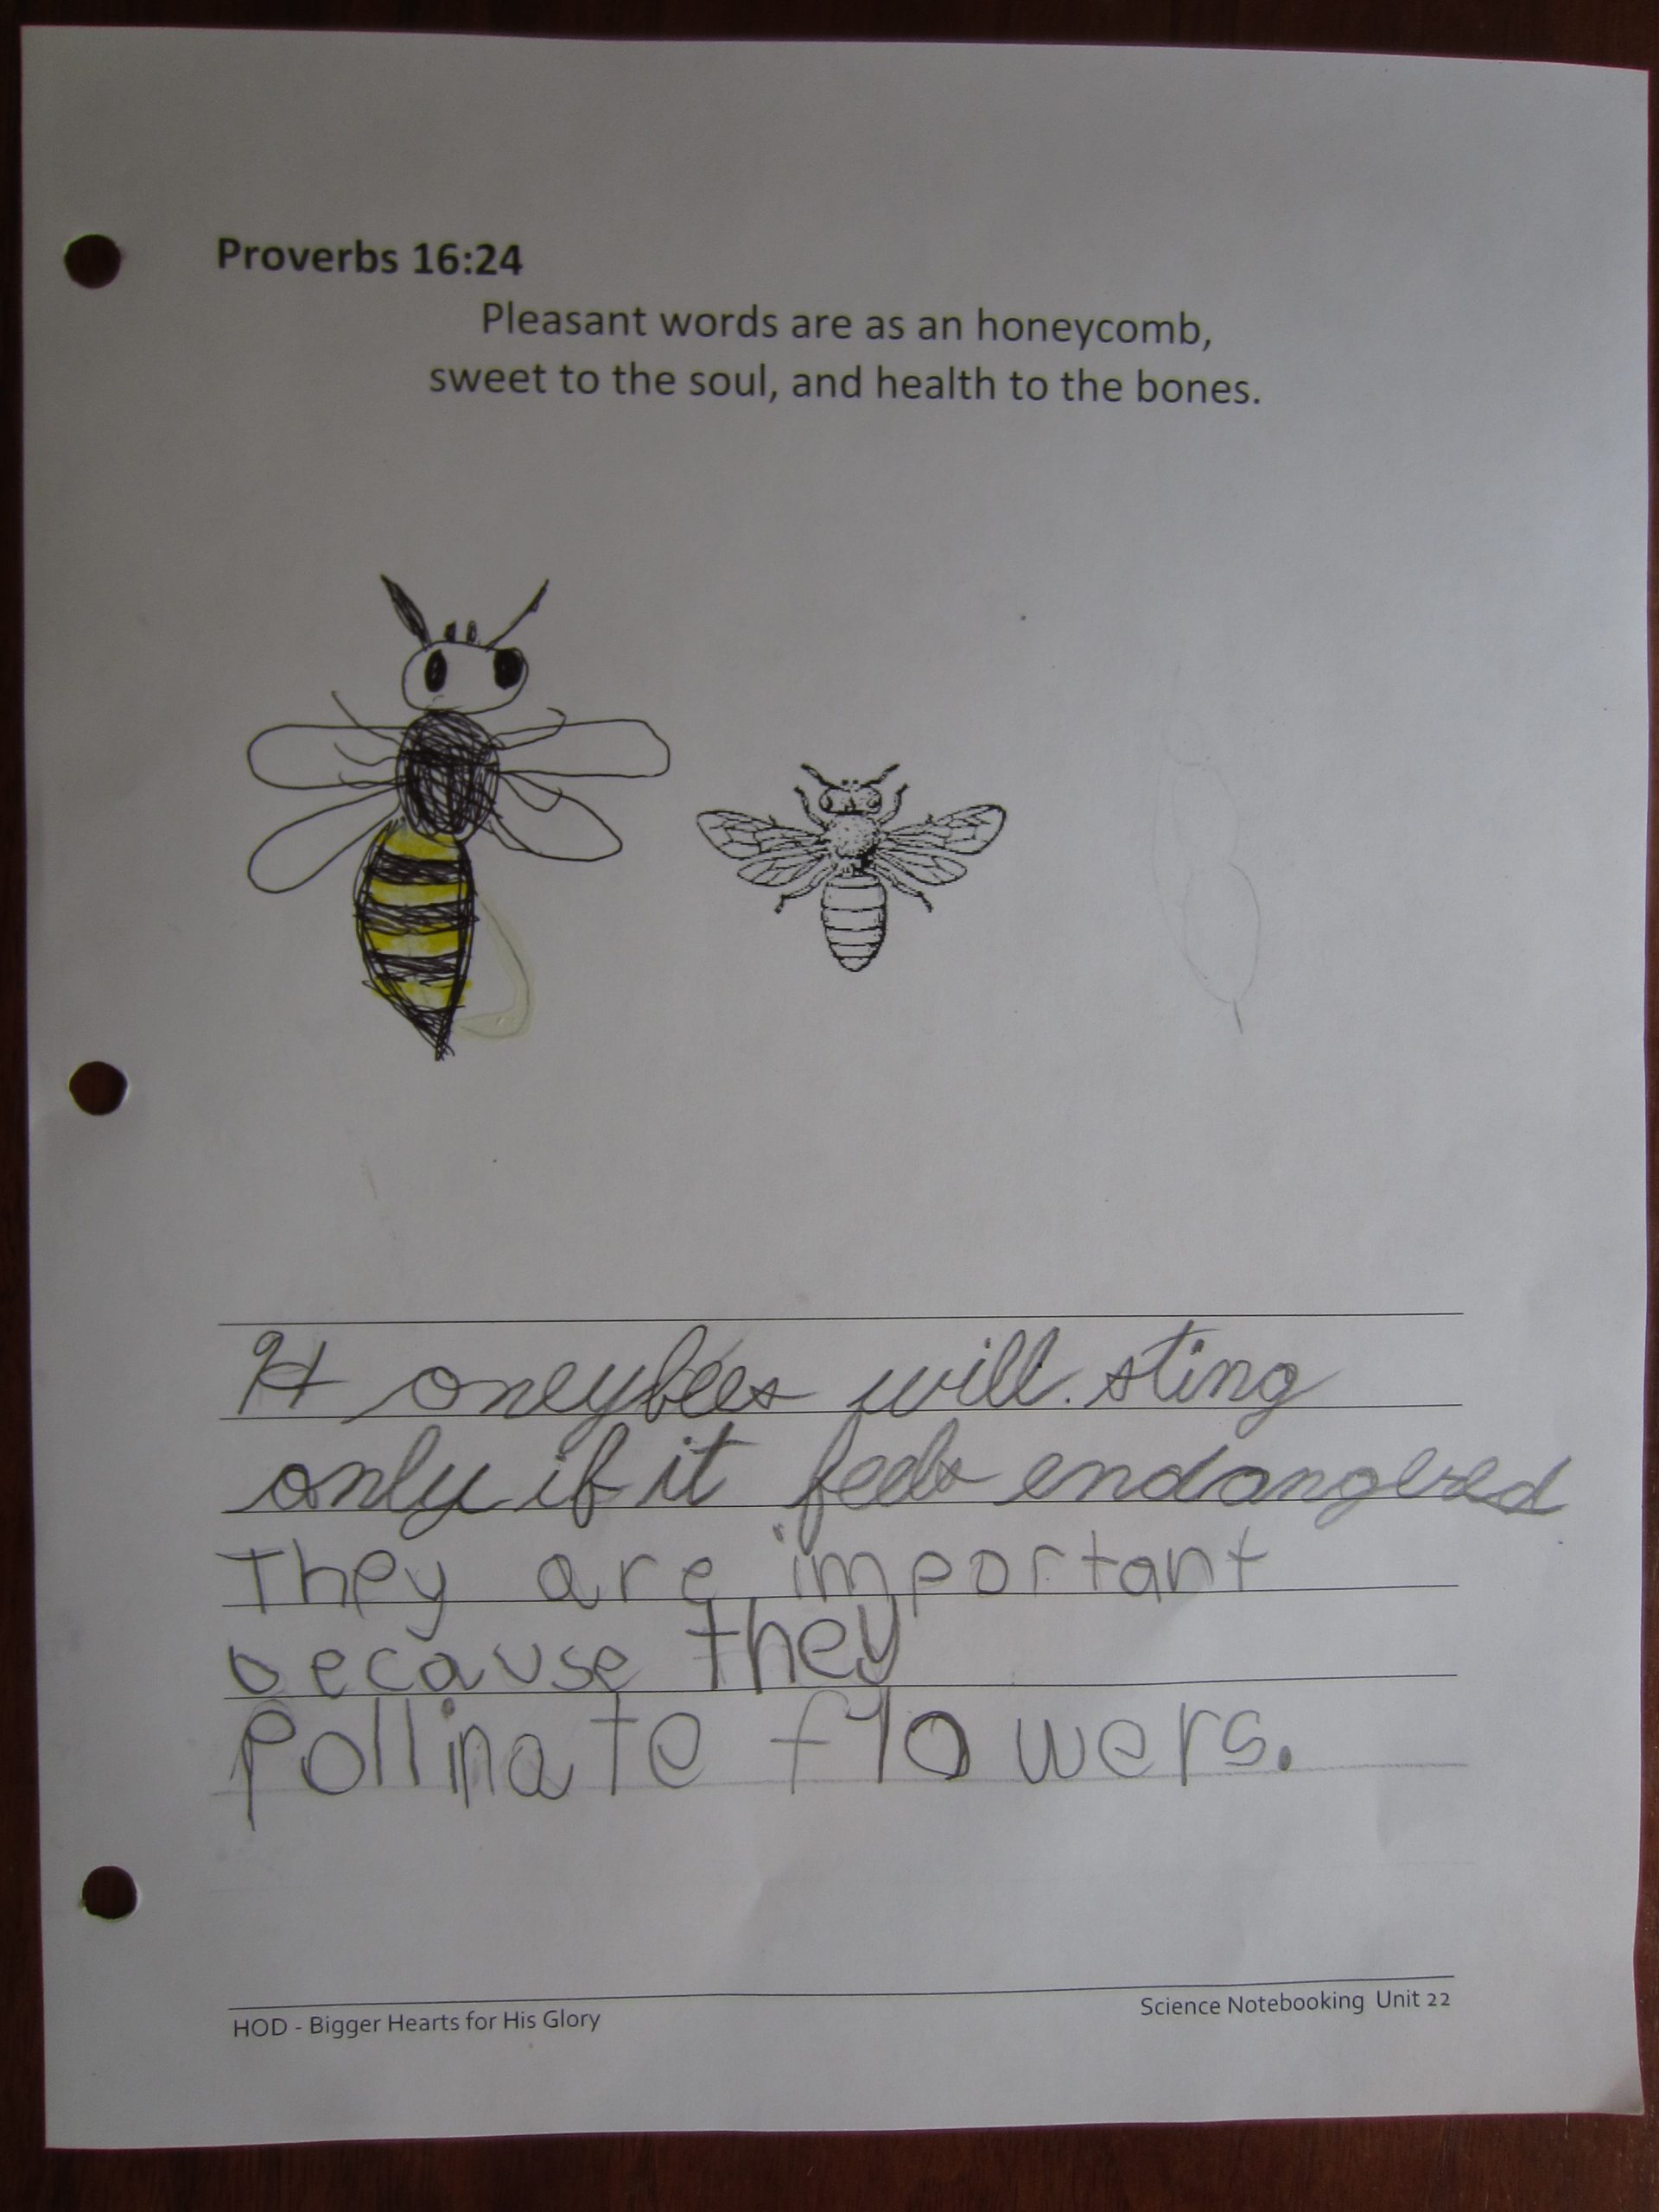 Proverbs 16:24
Pleasant words are as an honeycomb,
sweet to the soul, and health to the bones.
Honeybees will sting
only if it feels endangered
They are important
because they
pollinate flowers.
HOD - Bigger Hearts for His Glory
Science Notebooking Unit 22